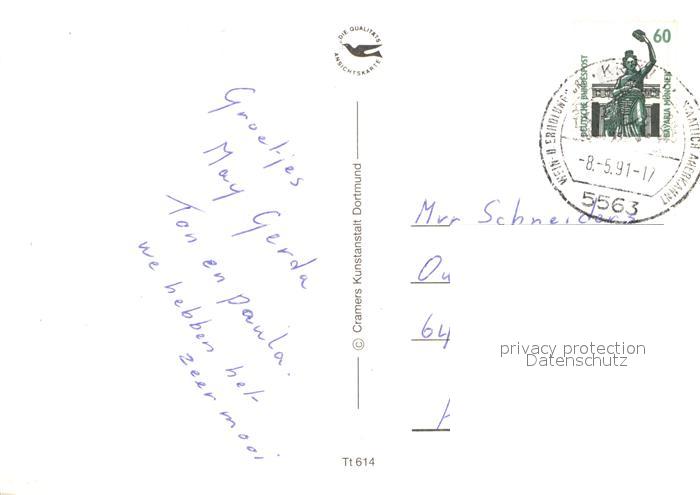 DIE QUALITÄTS
ANSICHTSKARTE
Groetjes
May Gerda
Ton en paula.
we hebben het
zeer mooi
© Cramers Kunstanstalt Dortmund
Tt 614
60
DEUTSCHE BUNDESPOST
BAVARIA MÜNCHEN
WEIN- U ERHOLUNGS
STAATLICH ANERKANNT
-8.-5.91-17
5563
Mvr Schneiders
Ou
64
privacy protection
Datenschutz